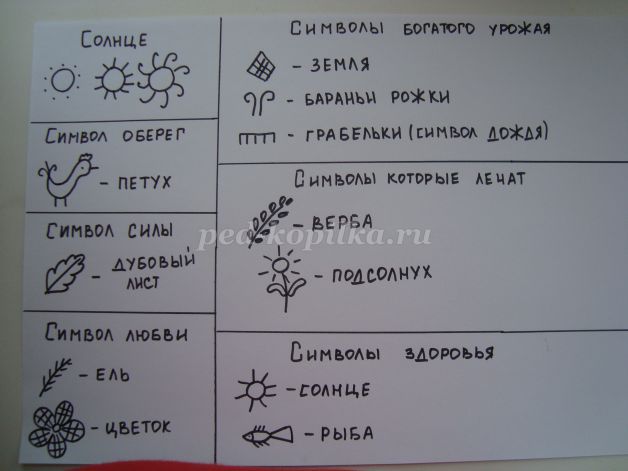 Солнце
Символ оберег
- петух
Символ силы
- дубовый
лист
Символ любви
- ель
- цветок
Символы богатого урожая
- земля
- бараньи рожки
- грабельки (символ дождя)
Символы которые лечат
- верба
- подсолнух
Символы здоровья
- солнце
- рыба
ped-kopilka.ru